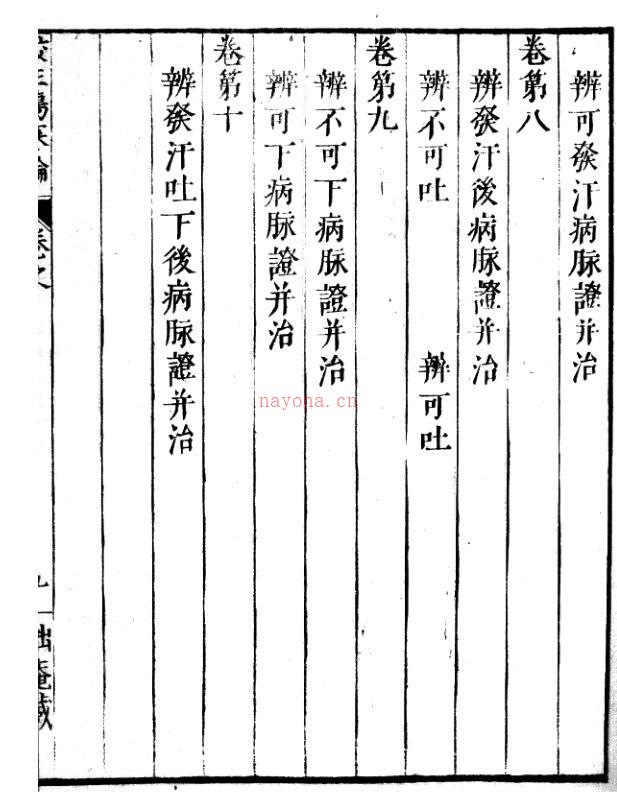 辨可發汗病脉證并治
卷第八
辨發汗後病脉證并治
辨不可吐　辨可吐
卷第九
辨不可下病脉證并治
辨可下病脉證并治
卷第十
辨發汗吐下後病脉證并治
nayona.cn